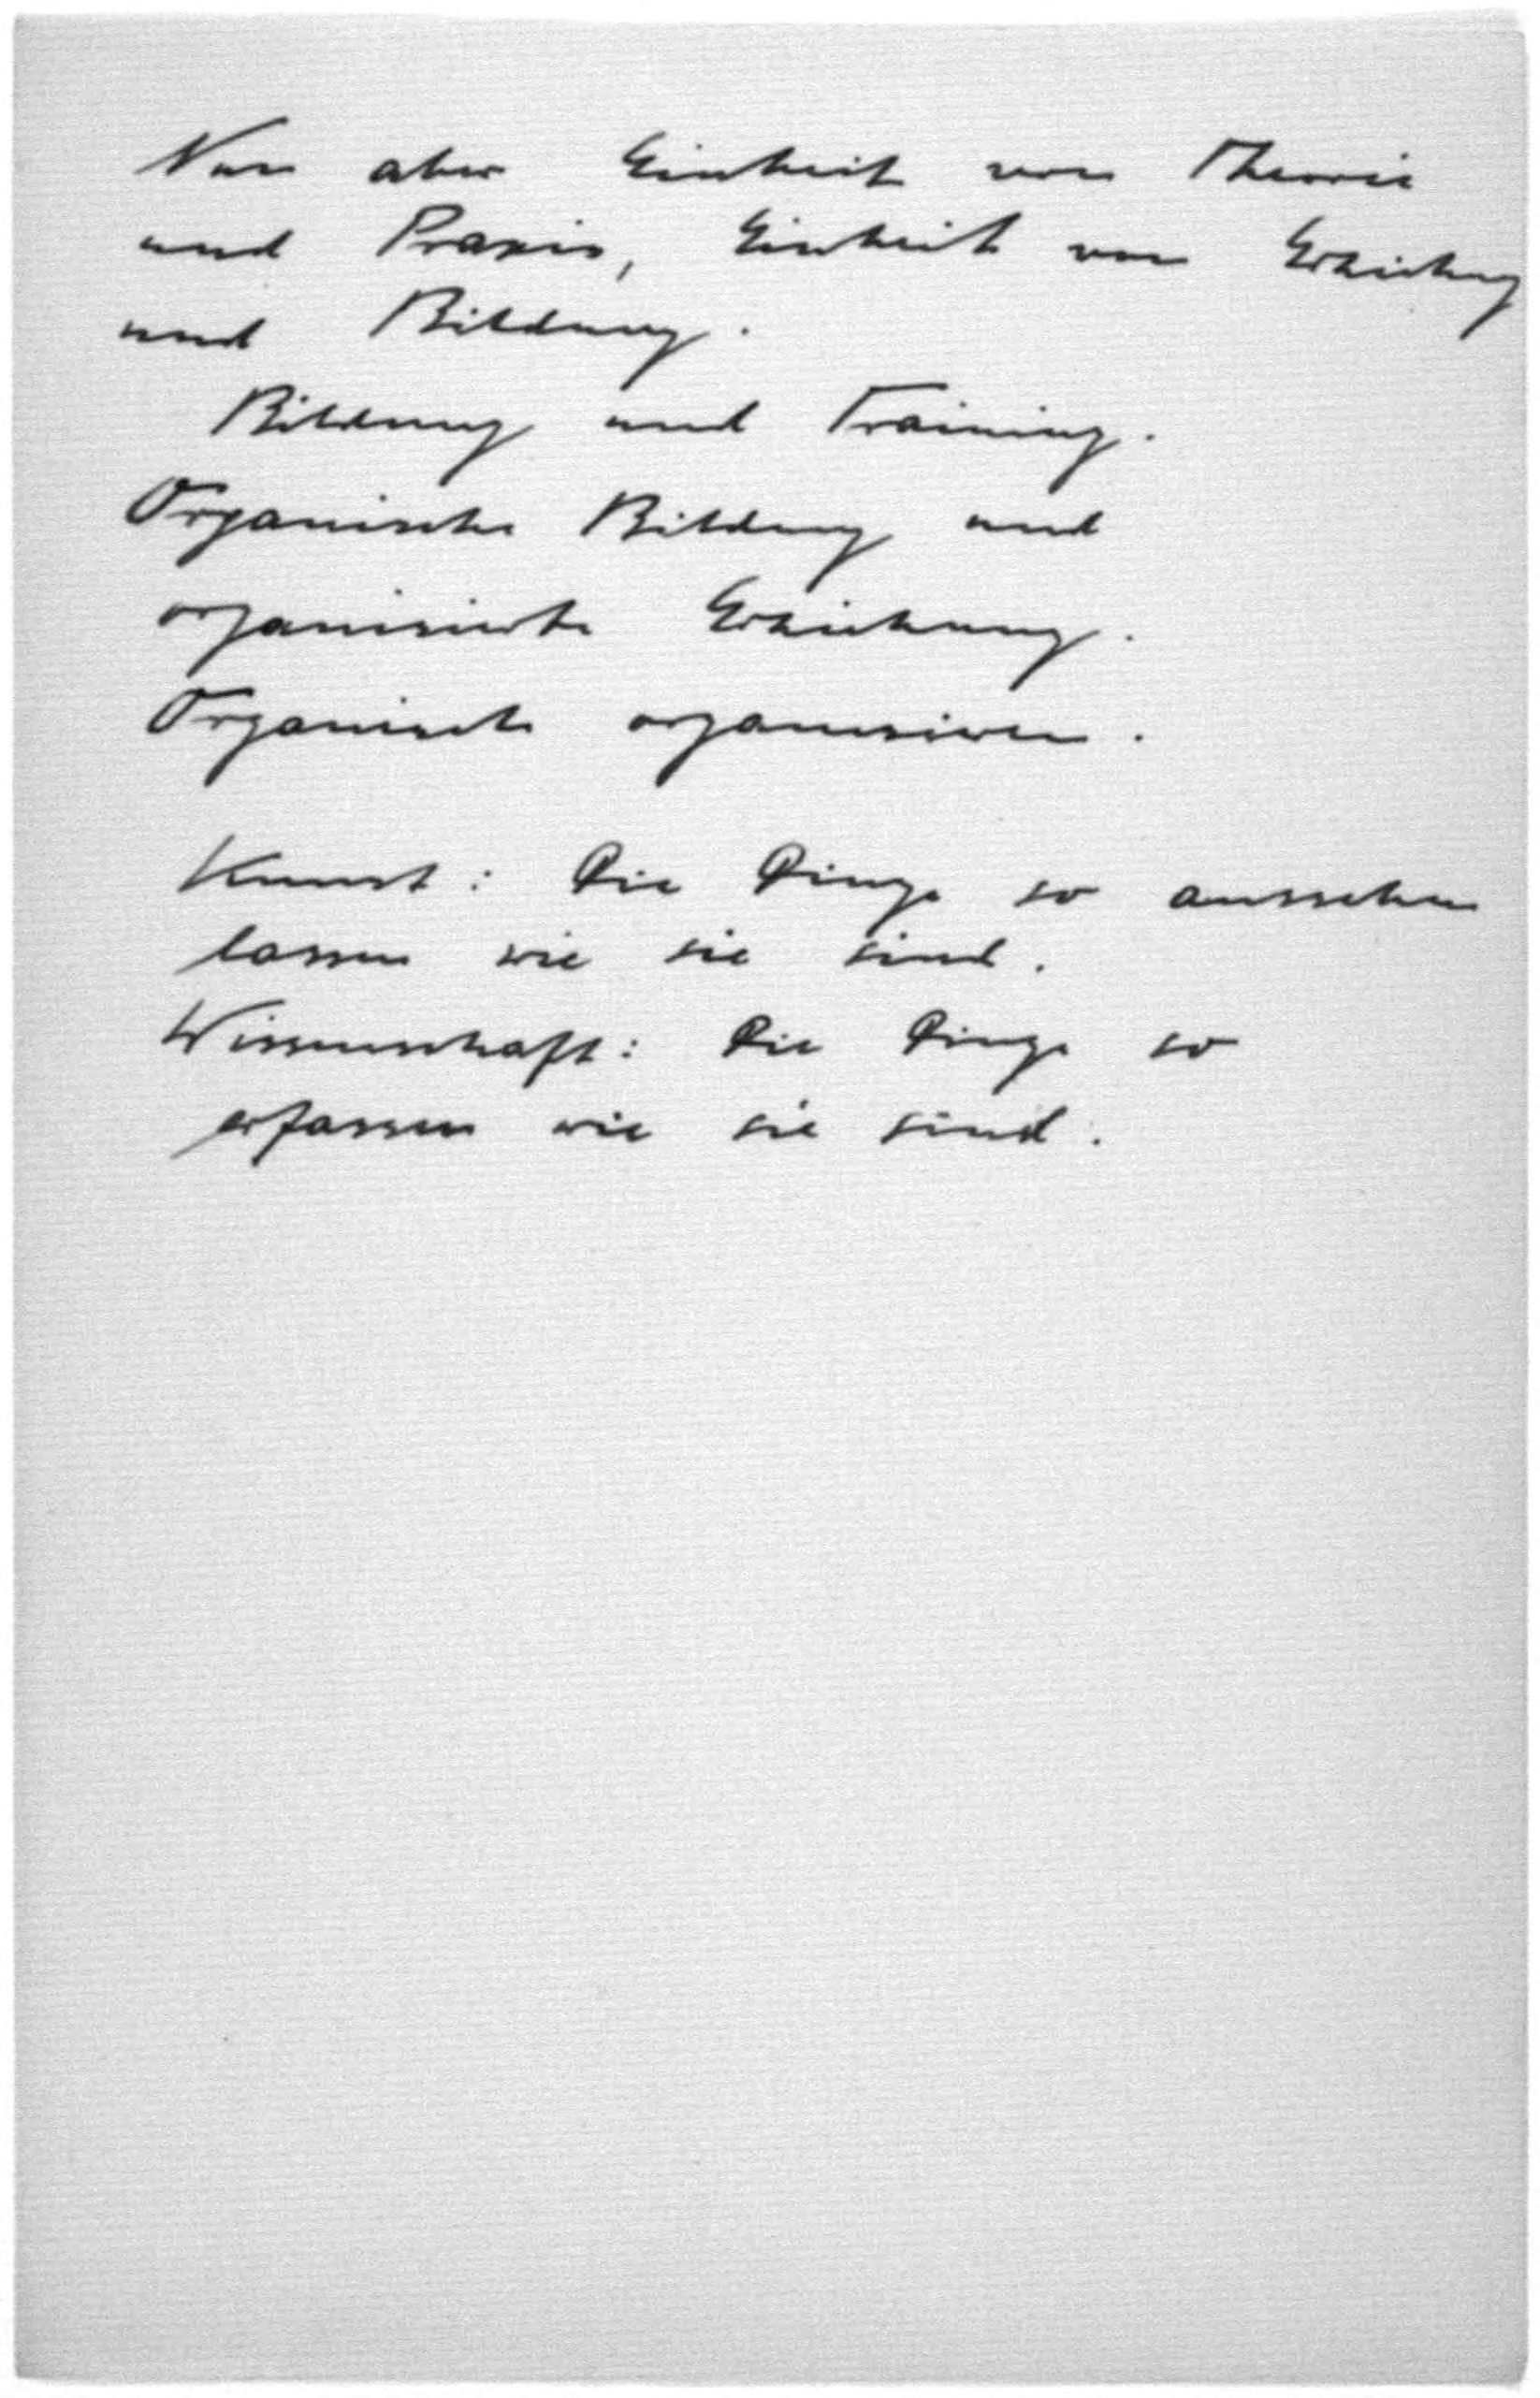 Nun aber Einheit von Theorie
und Praxis, Einheit von Erziehung
und Bildung.
Bildung und Training.
Organische Bildung und
organisierte Erziehung.
Organisch organisieren.
Kunst: Die Dinge so aussehen
lassen wie sie sind.
Wissenschaft: Die Dinge so
erfassen wie sie sind.